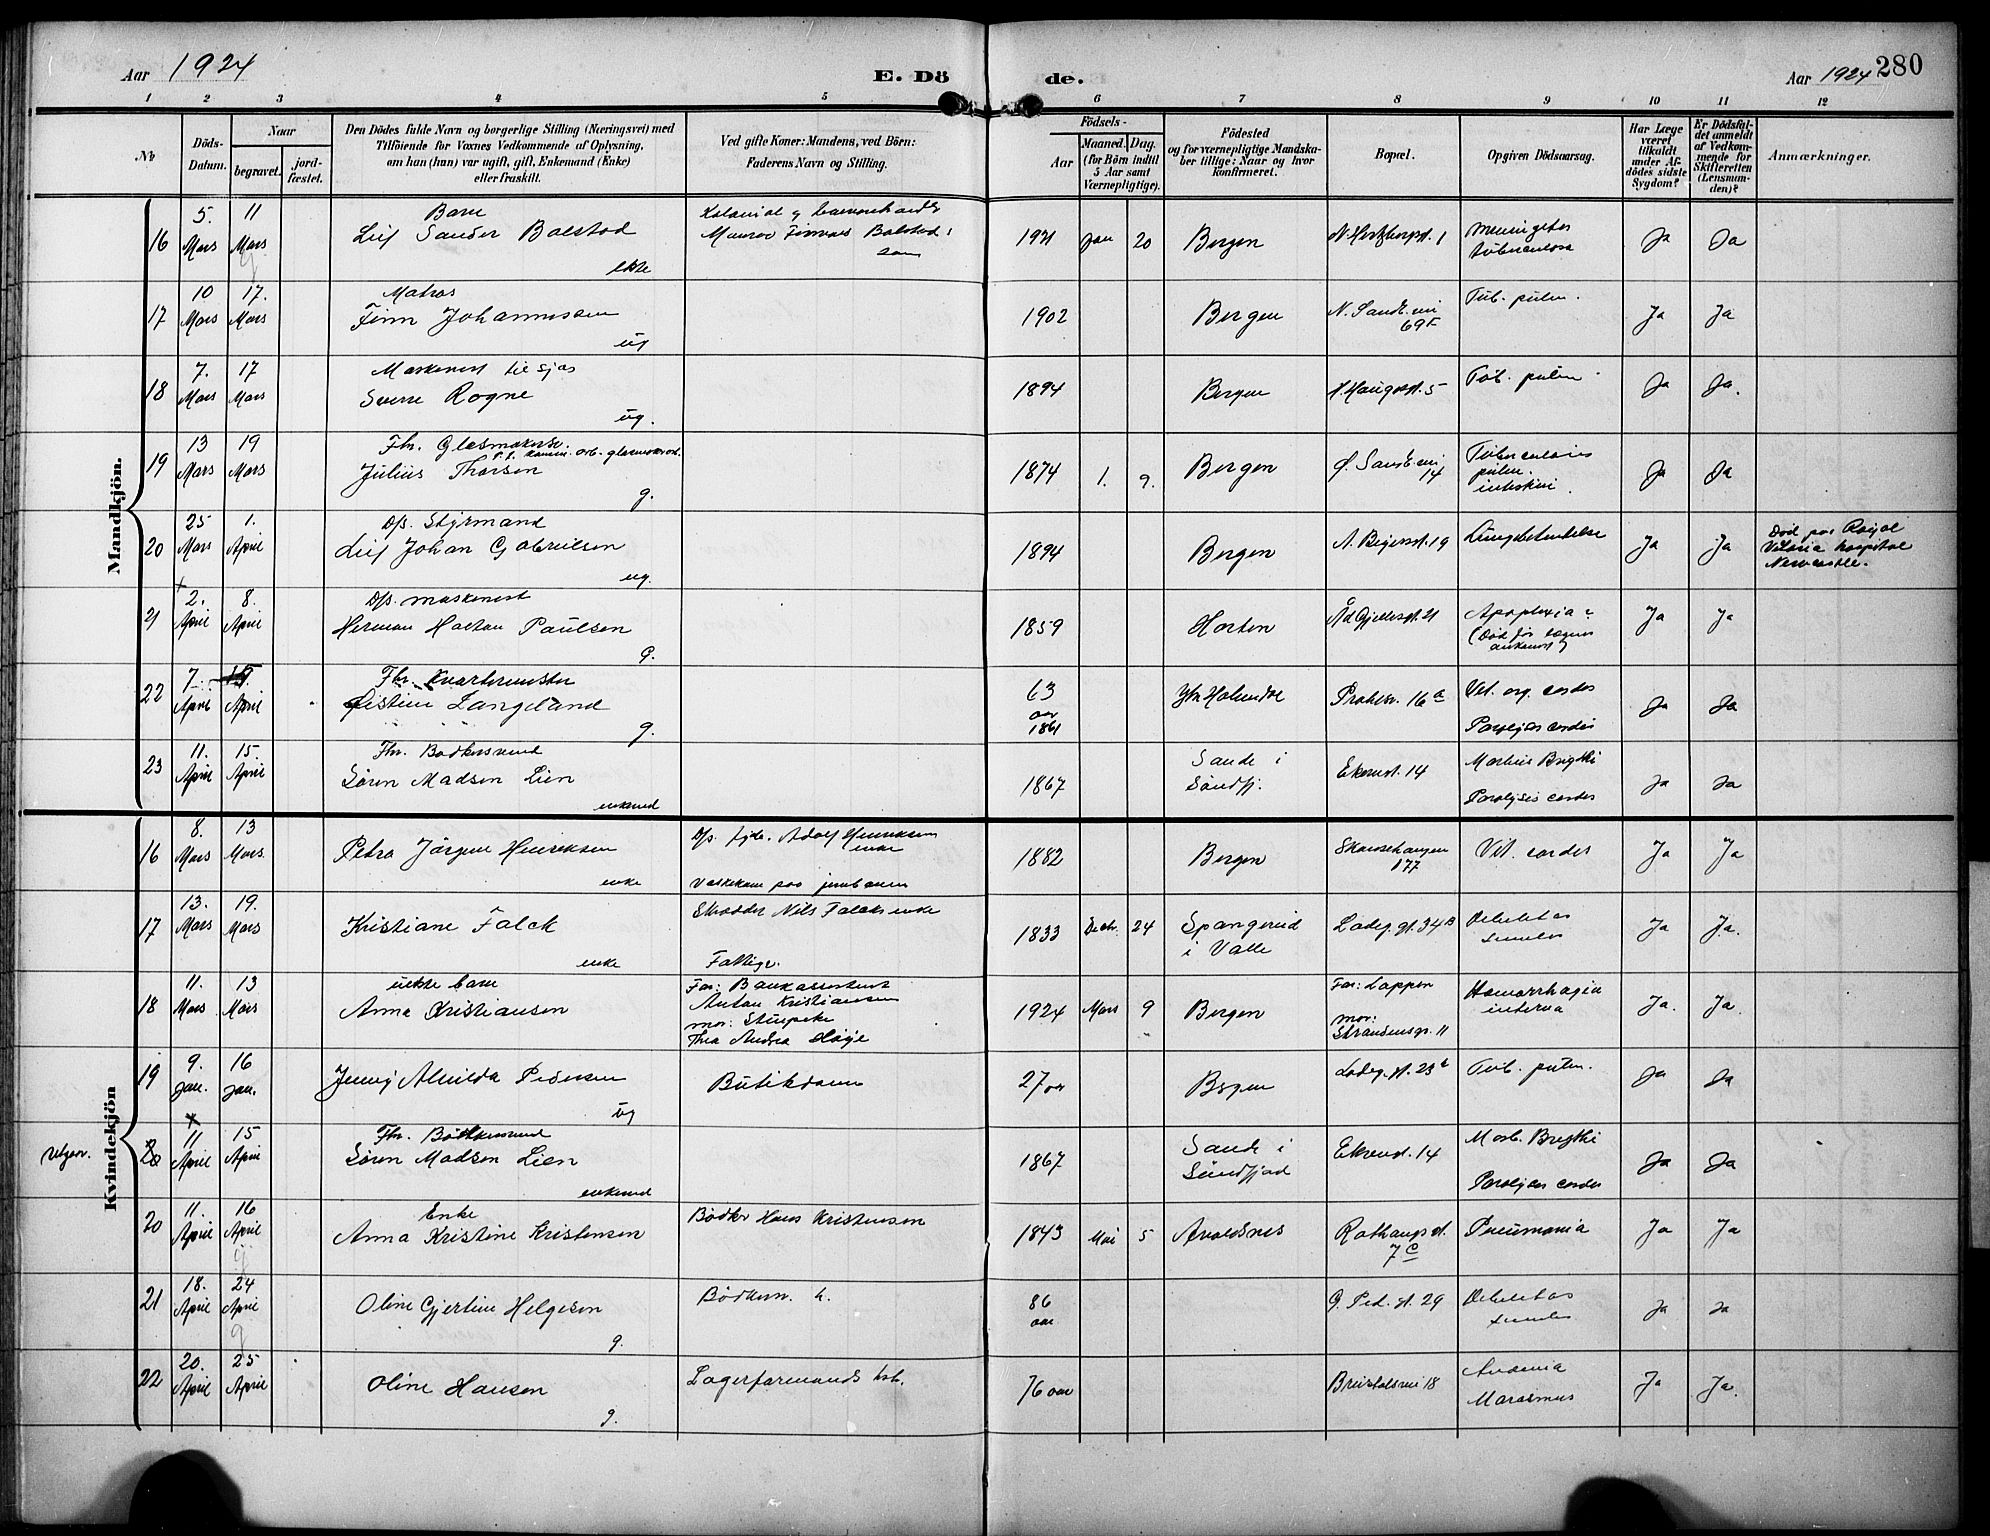 Aar 1924
E. Dö de.
Aar 1924 280
1 2 3 4 5 6 7 8 9 10 11 12
No
Döds-Datum.
Naar
begravet.
jord-fæstet.
Den Dödes fulde Navn og borgerlige Stilling (Næringsvei) med
Tilföiende for Voxnes Vedkommende af Oplysning,
om han (hun) var ugift, gift, Enkemand (Enke)
eller fraskilt.
Ved gifte Koner: Mandens, ved Börn:
Faderens Navn og Stilling.
Födsels-
Aar
Maaned. Dag.
(for Börn indtil
5 Aar samt
Værnepligtige).
Födested
og for værnepligtige Mandska-
ber tillige: Naar og hvor
konfirmeret.
Bopæl.
Opgiven Dödsaarsag.
Har Læge
været
tilkaldt
under Af-
dödes sidste
Sygdom?
Er Dödsfal-
det anmeldt
af Vedkom-
mende for
Skifteretten
(Lensman-
den)?
Anmærkninger.
Mandkjön.
16 5. Mars 11 Mars Barn Leif Sander Bolstad ekte Bolstad 1921 Jan 20 Bergen 1 Meningitis tuberculosa Ja Ja
17 10 Mars 17. Mars Matros Finn Johannessen ug 1902 Bergen N. Sandv.vei 69F Tub. pulm. Ja Ja
18 7. Mars 17 Mars Maskinist til sjøs Sverre Rogne ug. 1894 Bergen H. Haugesgt. 5 Tub. pulm. Ja Ja.
19 13 Mars 19 Mars Fhr. Glasmakersv. Julius Thorsen g. 1874 1. 9. Bergen Ø. Sandv.vei 14 Tuberculosis pulm. intestini. Ja Ja
20 25 Mars 1. April D/s. Styrmand Leif Johan Gabrielsen ug. 1894 Bergen 19 Lungebetendelse Ja Ja Død paa Royal Viktoria hospital Newcastle.
21 2. April 8. April D/s. maskinist Herman Paulsen g. 1859 Horten 21 Apoplexia? (Død før lægens ankomst) Ja Ja
22 7. April April Fhr. Kvartermester Øistein Langeland g. 63 aar 1861 Ytr Holmedal 16a Vit. org. cordis Paralysis cordis Ja Ja
23 11. April 15. April Fhr. Bødkersvend Søren Madsen Lien enkemd 1867 Sande i Søndfj. Ekrengt. 14 Morbus Brigthi Paralysis cordis Ja Ja
Kvindekjön
16 8. Mars 13 Mars. Petra Jørgine Henriksen enke D/s. fyrb. Adolf Henriksens enke Vaskekone paa jernbanen 1882 Bergen Skansehaugen 177 Vit. cordis Ja Ja
17 13. Mars 19. Mars Kristiane Falck enke Skrædder Nils Falcks enke Fattigu. 1833 Decbr. 24 Spangerud i Valle Ladeg. gt. 34B Debilitas senilis Ja Ja.
18 11. Mars 13 Mars uekte barn Anna Kristiansen Far: Bankassistent Anton Kristiansen mor: Stuepike Thea Andrea Høyje 1924 Mars 9 Bergen Far: Loppen mor: Strandensgt. 11 Hæmorrhagia interna Ja. Ja.
19 9. Jan. 16 Jan. Jenny Alvilda Pedersen ug Butikdame 27 aar Bergen Ladeg. gt. 23b Tub. pulm. Ja Ja
utgaar. 20 11 April 15 April Fhr. Bødkersvend Søren Madsen Lien enkemd 1867 Sande i Søndfjord Ekrengt. 14 Morb. Brigthi Paralysis cordis Ja Ja
20 11. April 16 April Enke Anna Kristine Kristensen Bødker Hans Kristensen 1843 Mai 5 Avaldsnes Rothaugsgt. 7c Pneumonia Ja Ja
21 18. April 24 April Oline Gjertine Helgesen g. Bødkerm. h. 86 aar G. Ped. gt. 29 Debilitas senilis Ja Ja
22 20. April 25 April Oline Hansen g. Lagerformands hst. 76 aar 18 Anæmia Marasmus Ja Ja.